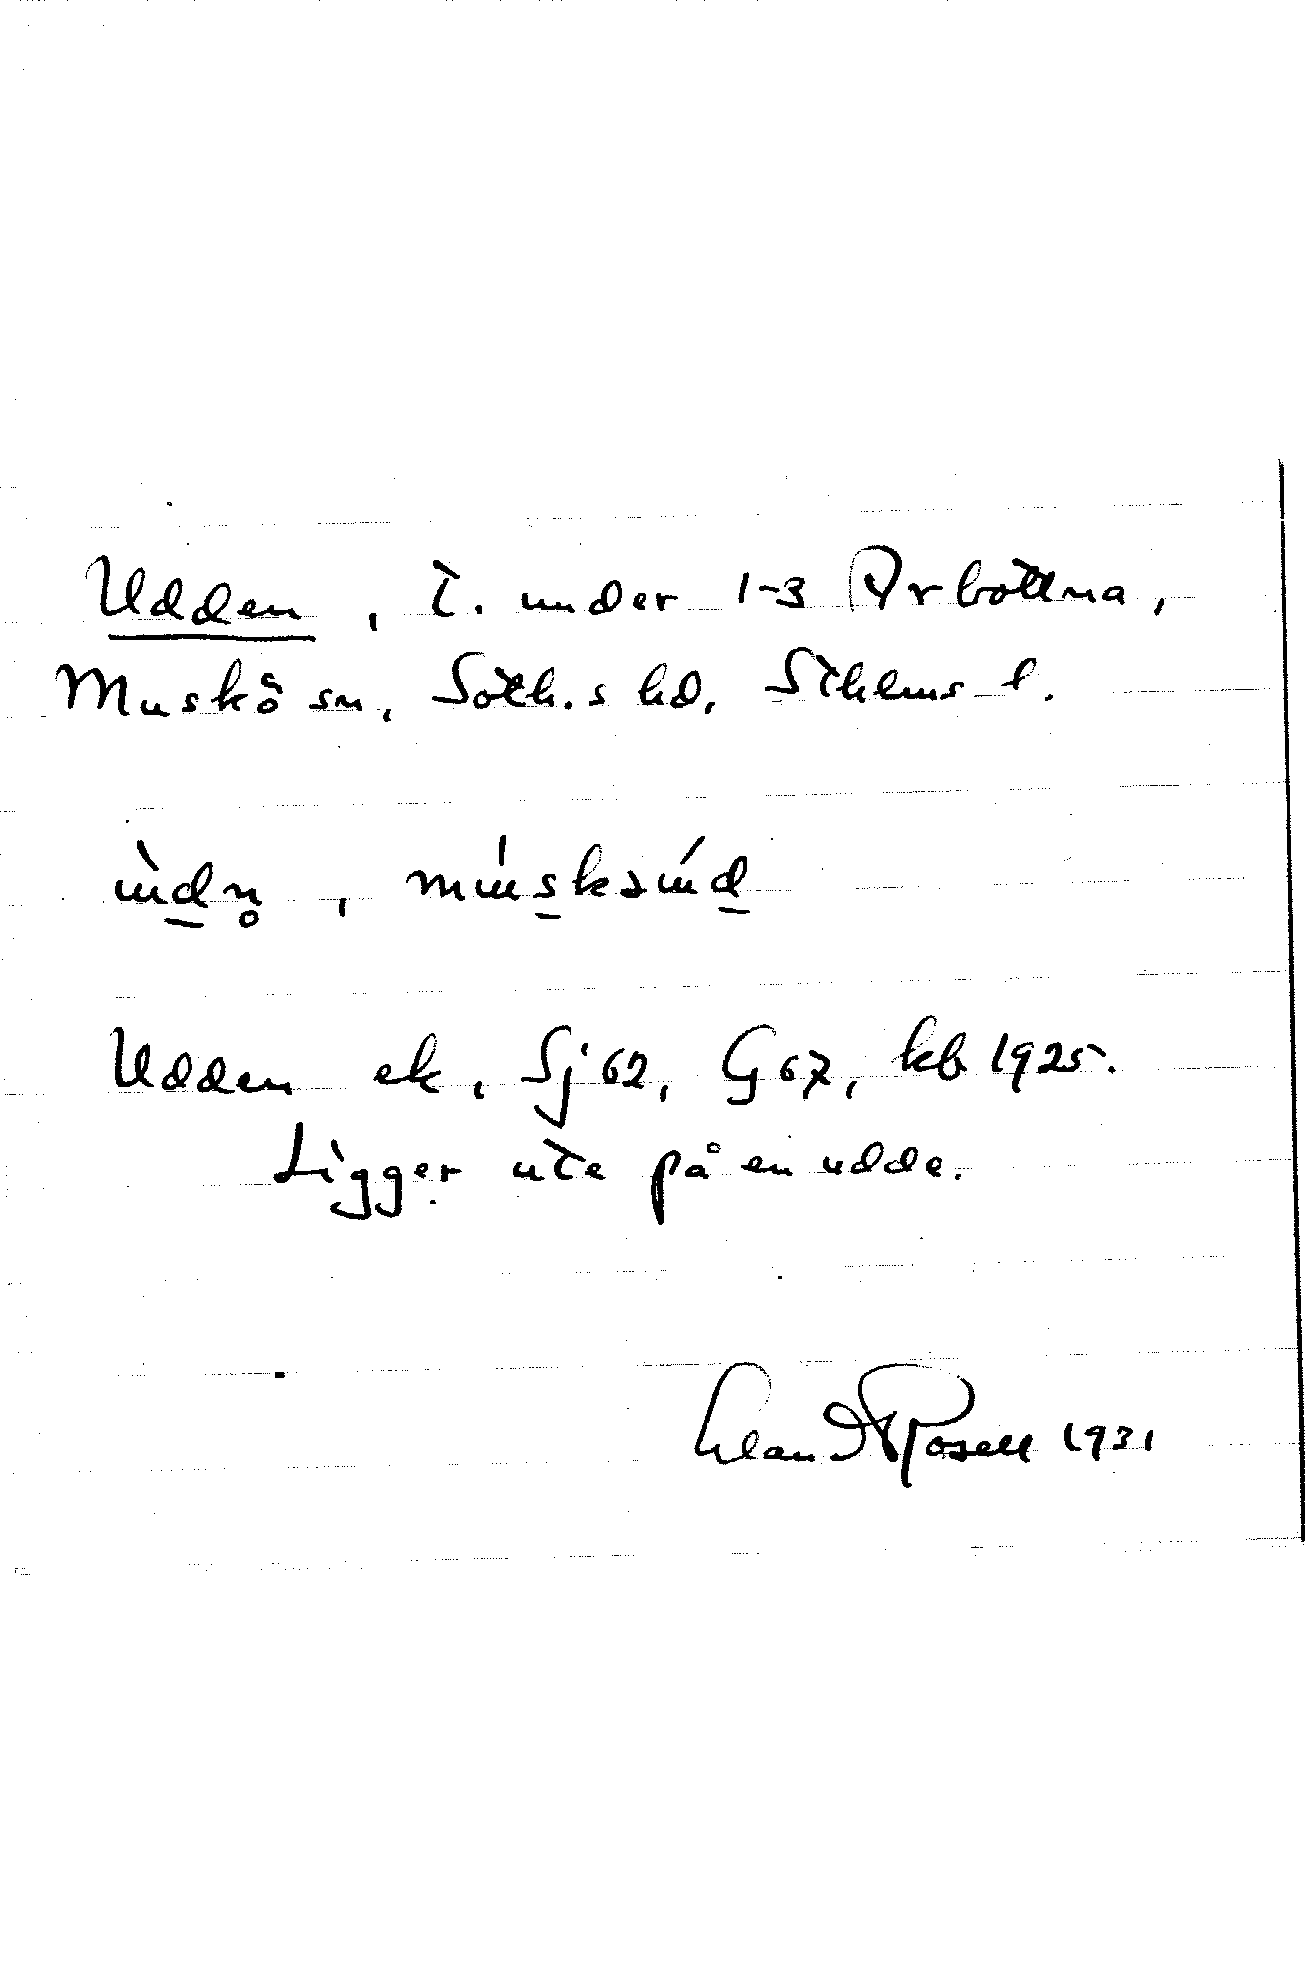 Udden, t. under 1-3 Arbottna,
Muskö sn, Soth.s hd, Sthlms l.
Udden ek, Sj 62, G 67, kb 1925.
Ligger ute på en udde.
Rosell 1931